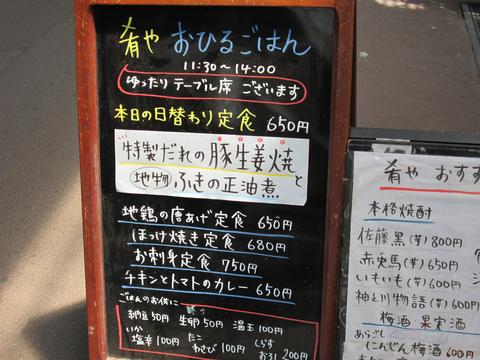 肴や おひるごはん
11:30〜14:00
ゆったり テーブル席 ございます
本日の日替わり定食 650円
特製だれの豚生姜焼と
地物 ふきの正油煮
地鶏の唐あげ定食 650円
ほっけ焼き定食 680円
お刺身定食 750円
チキンとトマトのカレー 650円
ごはんのお供に
納豆50円 生卵50円 温玉100円
いか塩辛100円 たこわさび100円 しらすおろし200
肴や おすす
本格焼酎
佐藤黒(芋)800円
赤兎馬(芋)650円
いもいも(芋)600円
神と川物語(芋)600円
梅酒 果実酒
あらごし
にんじん梅酒 600円